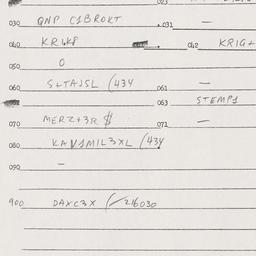 023
030 QNP C1BROKT 031 —
040 KRWKP 042 KRIG+
050 O
060 S+TAJSL (434 061 —
063 STEMP1
070 MERZ+3R $ 071 —
080 KAV1MIL3XL (434
090 —
900 DAXC3X (216030